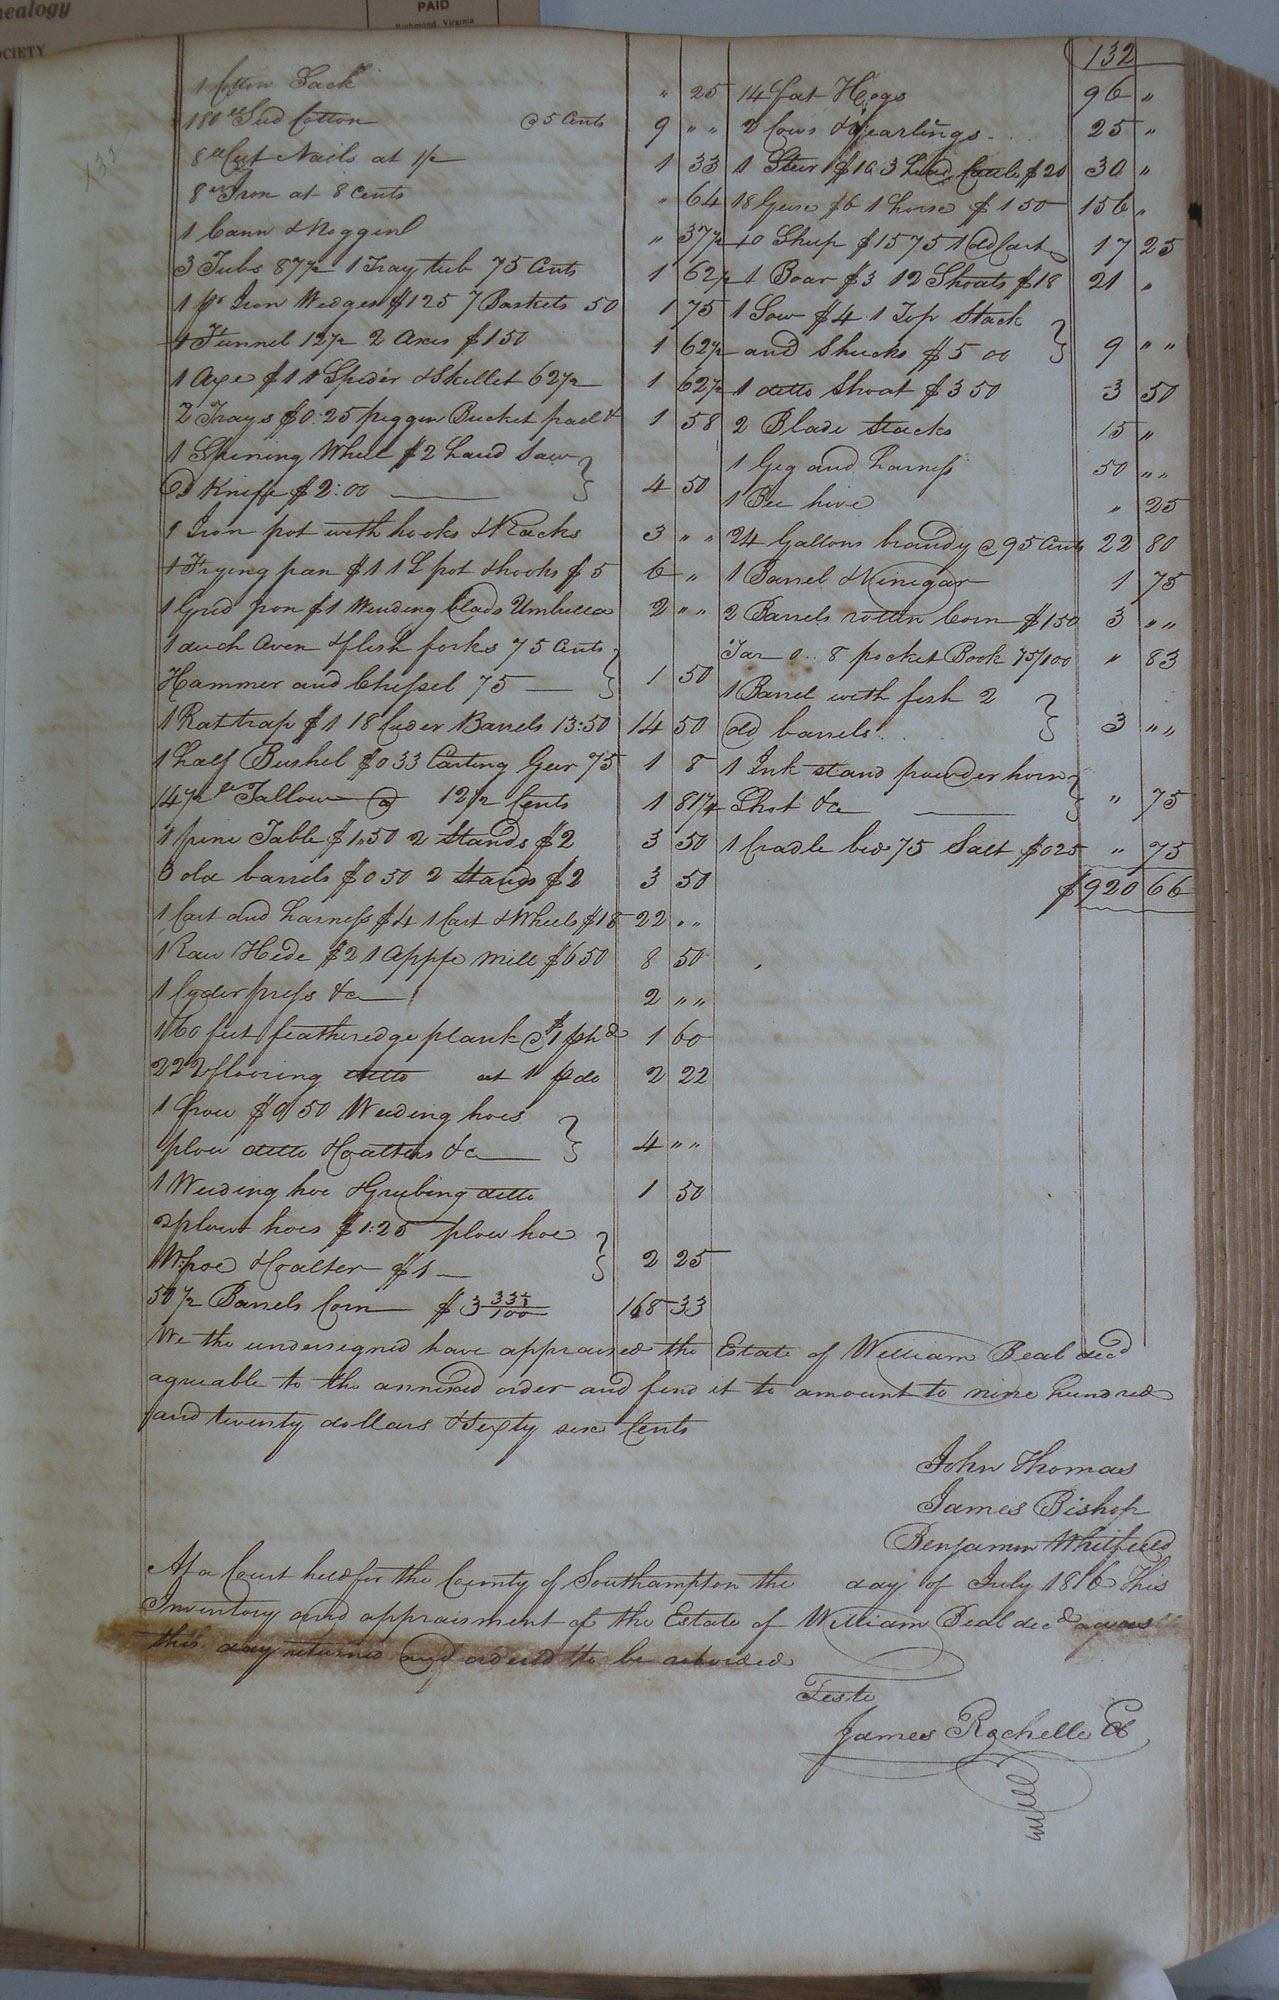 nealogy
OCIETY
PAID
Richmond, Virginia
132
1 Cotton Sack " 25
180 lb Seed Cotton @ 5 Cents 9 " "
8 lb Cut Nails at 1/ 1 33
8 lb Iron at 8 Cents " 64
1 Cann & Noggin " 37½
3 Tubs 87½ 1 Tray tub 75 Cents 1 62½
1 pr Iron Wedges $1 25 7 Baskets 50 1 75
1 Funnel 12½ 2 Axes $1 50 1 62½
1 Axe $1 1 Spider & Skillet 62½ 1 62½
2 Trays $0.25 piggin Bucket pail & 1 58
1 Spining Wheel $2 hand Saw
& Kniff $2:00 4 50
1 Iron pot with hooks & Racks 3 " "
1 Frying pan $1 1 L pot & hooks $5 6 "
1 Grid Iron $1 Wending blads Umbrella 2 " "
1 duch Oven & flesh forks 75 Cents
Hammer and Chissel 75 1 50
1 Rattrap $1 18 Cider Barrels 13:50 14 50
1 half Bushel $0 33 Carting Gear 75 1 8
14½ lb Tallow @ 12½ Cents 1 81¼
1 pine Table $1.50 2 Stands $2 3 50
3 old barrels $0 50 2 Stands $2 3 50
1 Cart and harness $4 1 Cart & Wheels $18 22 "
1 Raw Hide $2 1 Appe Mill $6 50 8 50
1 Cyder press &c 2 " "
160 feet featheredge plank @ $1 phd 1 60
222 flooring ditto at 1 p do 2 22
1 frow $0 50 Weeding hoes
plow ditto Coalters &c 4 " "
1 Weeding hoe & Grubing ditto 1 50
2 plow hoes $1:25 plow hoe
W:hoe & Coalter $1 2 25
50½ Barrels Corn $3 33⅓/100 168 33
14 fat Hogs 96 "
2 Cows & Yearlings 25 "
1 Steer $10 3 head Cattle $20 30 "
18 Geese $6 1 horse $150 156 "
10 Sheep $15 75 1 old Cart 17 25
1 Boar $3 12 Shoats $18 21 "
1 Sow $4 1 Top Stack
and Shucks $5 00 9 " "
1 ditto Shoat $3 50 3 50
2 Blade Stacks 15 "
1 Gig and harness 50 " "
1 Bee hive " 25
24 Gallons brandy @ 95 Cents 22 80
1 Barrel & Vinigar 1 75
2 Barrels rotten Corn $1 50 3 " "
Tar 0..8 pocket Book 75/100 " 83
1 Barrel with fish 2
old barrels 3 " "
1 Ink stand powder horn
Shot &c " 75
1 Cradle bed 75 Salt $025 " 75
$920 66
We the undersigned have appraised the Estate of William Beal decd
agreable to the annexed order and find it to amount to nine hundred
and twenty dollars & Sixty six Cents
John Thomas
James Bishop
Benjamin Whitfield
At a Court held for the County of Southampton the day of July 1816 This
Inventory and appraisment of the Estate of William Beal decd was
this day returned and ordered to be recorded
Teste
James Rochelle Cl